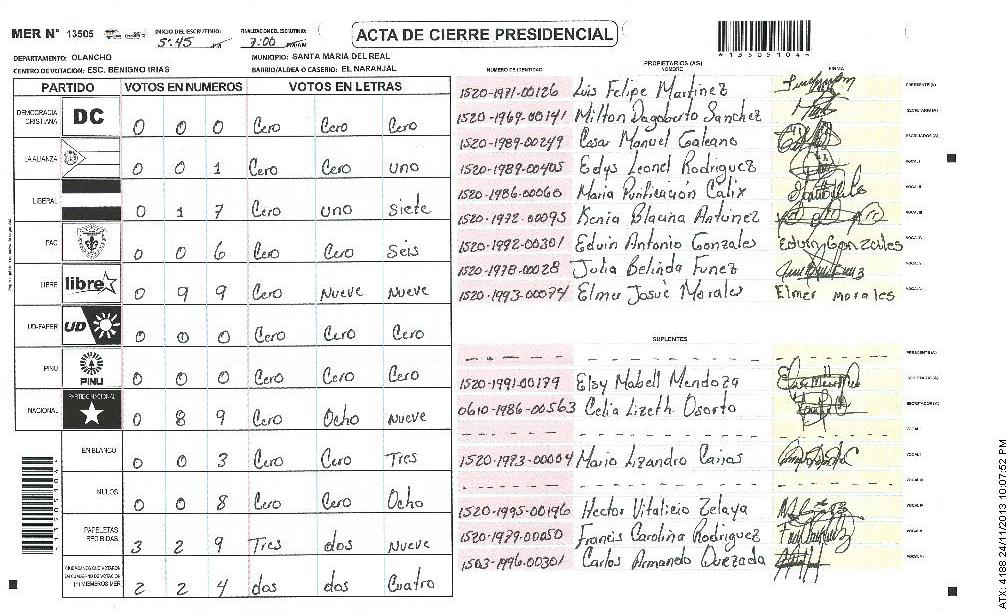 MER N° 13505 INICIO DEL ESCRUTINIO: 5:45 FINALIZACION DEL ESCRUTINIO: 7:00 ACTA DE CIERRE PRESIDENCIAL
DEPARTAMENTO: OLANCHO MUNICIPIO: SANTA MARIA DEL REAL
CENTRO DE VOTACION: ESC. BENIGNO IRIAS BARRIO/ALDEA O CASERIO: EL NARANJAL
PARTIDO VOTOS EN NUMEROS VOTOS EN LETRAS
DEMOCRACIA CRISTIANA DC 0 0 0 Cero Cero Cero
LA ALIANZA 0 0 1 Cero Cero uno
LIBERAL 0 1 7 Cero uno Siete
PAC 0 0 6 Cero Cero Seis
LIBRE libre 0 9 9 Cero Nueve Nueve
UD-FAPER UD 0 0 0 Cero Cero Cero
PINU PINU 0 0 0 Cero Cero Cero
NACIONAL PARTIDO NACIONAL 0 8 9 Cero Ocho Nueve
EN BLANCO 0 0 3 Cero Cero Tres
NULOS 0 0 8 Cero Cero Ocho
PAPELETAS RECIBIDAS 3 2 9 Tres dos Nueve
CIUDADANOS QUE VOTARON EN CUADERNO DE VOTACION (+) MIEMBROS MER 2 2 4 dos dos Cuatro
PROPIETARIOS (AS)
NUMERO DE IDENTIDAD NOMBRE FIRMA
1520-1971-00126 Luis Felipe Martinez PRESIDENTE (A)
1520-1969-00141 Milton Dagoberto Sanchez SECRETARIO (A)
1520-1989-00249 Cesar Manuel Galeano ESCRUTADOR (A)
1520-1989-00405 Edys Leonel Rodriguez VOCAL I
1520-1986-00060 Maria Purificación Calix VOCAL II
1520-1972-00095 Kenia Blauna Antunez VOCAL III
1520-1992-00301 Edvin Antonio Gonzales Edvin Gonzales VOCAL IV
1520-1978-00028 Julia Belinda Funez VOCAL V
1520-1993-00074 Elmer Josué Morales Elmer morales VOCAL VI
SUPLENTES
PRESIDENTE (A)
1520-1991-00179 Elsy Mabell Mendoza SECRETARIO (A)
0610-1986-00563 Celia Lizeth Osorto ESCRUTADOR (A)
VOCAL I
1520-1973-00004 Mario Lizandro VOCAL II
VOCAL III
1520-1995-00196 Hector Vitalicio Zelaya VOCAL IV
1520-1979-00050 Francis Carolina Rodriguez VOCAL V
1503-1996-00301 Carlos Armando Quezada VOCAL VI
ATX: 4188 24/11/2013 10:07:52 PM